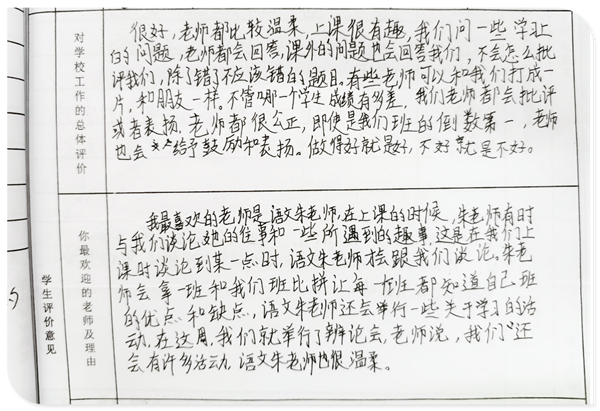 对学校工作的总体评价
很好，老师都比较温柔，上课很有趣，我们问一些学习上
的问题，老师都会回答，课外的问题也会回答我们，不会怎么批
评我们，除了错了不应该错的题目。有些老师可以和我们打成一
片，和朋友一样。不管哪一个学生成绩有多差，我们老师都会批评
或者表扬。老师都很公正，即使是我们班的倒数第一，老师
也会给予鼓励和表扬。做得好就是好，不好就是不好。
学生评价意见
你最欢迎的老师及理由
我最喜欢的老师是语文朱老师，在上课的时候，朱老师有时
与我们谈论她的往事和一些所遇到的趣事，这是在我们上
课时谈论到某一点时，语文朱老师才会跟我们谈论。朱老
师会拿一班和我们班比拼让每一班都知道自己班
的优点和缺点，语文朱老师还会举行一些关于学习的活
动，在这周，我们就举行了辨论会，老师说，我们还
会有许多活动，语文朱老师也很温柔。